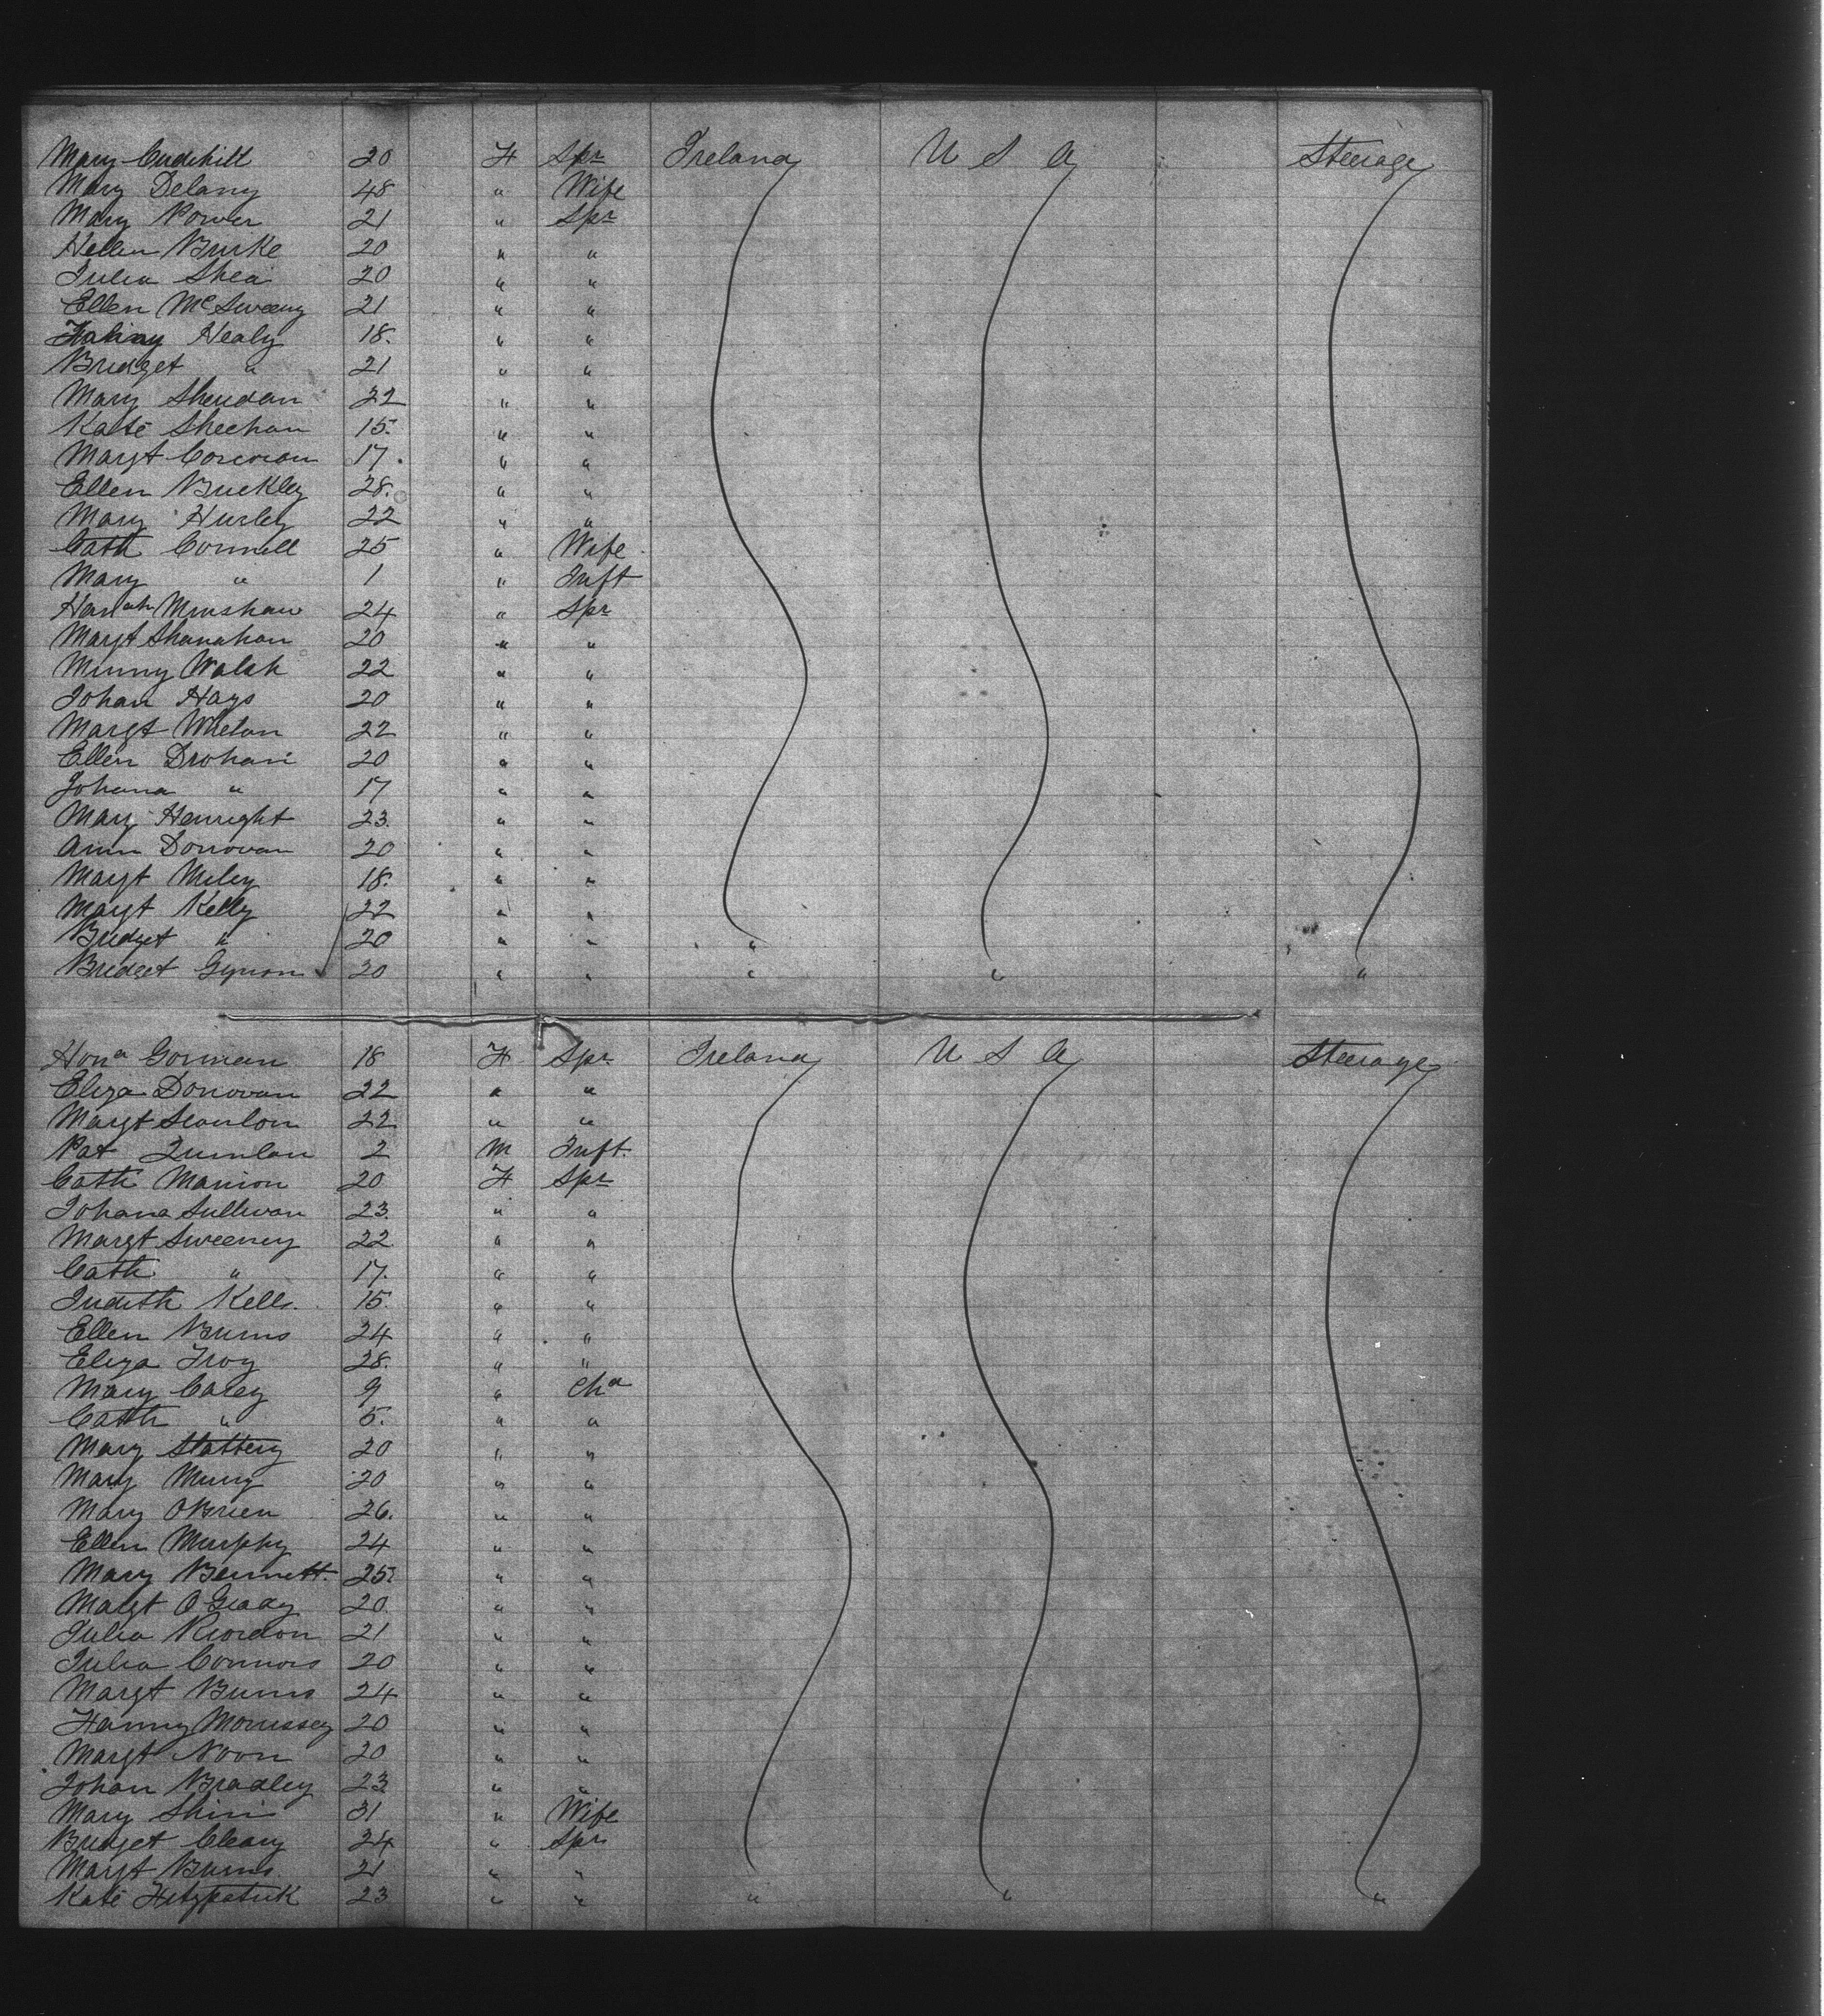 Mary Cudihill 20 F Spr Ireland U S A Steerage
Mary Delany 48 " Wife
Mary Power 21 " Spr
Hellen Burke 20 " "
Julia Shea 20 " "
Ellen McSweeny 21 " "
Healy 18. " "
Bridget " 21 " "
Mary Sheridan 22 " "
Kate Sheehan 15. " "
Margt Corcoran 17. " "
Ellen Buckley 28. " "
Mary Hurley 22 " "
Cath Connell 25 " Wife
Mary " 1 " Inft
Hanah Minshaw 24 " Spr
Margt Shanahan 20 " "
Minny Walsh 22 " "
Johan Hays 20 " "
Margt Whelan 22 " "
Ellen Drohan 20 " "
Johana " 17 " "
Mary Henright 23. " "
Ann Donovan 20 " "
Margt Meley 18. " "
Margt Kelly 22 " "
Bridget " 20 " " "
Bridget 20 " " " " "
Hona Gorman 18 F Spr Ireland U S A Steerage
Eliza Donovan 22 " "
Margt Scanlon 22 " "
Pat Quinlan 2 M Inft.
Cath Manion 20 F Spr
Johana Sullivan 23. " "
Margt Sweeney 22 " "
Cath " 17. " "
Judith Kells. 15. " "
Ellen Burns 24 " "
Eliza Troy 28. " "
Mary Carey 9 " Chd
Cath " 5. " "
Mary Slattery 20 " "
Mary 20 " "
Mary OBrien 26. " "
Ellen Murphy 24 " "
Mary Bennett. 25. " "
Margt O Grady 20. " "
Julia Riordon 21 " "
Julia Connors 20 " "
Margt Burns 24 " "
Hanny Morrissey 20 " "
Margt Noon 20 " "
Johan Bradley 23 " "
Mary Shini 31 " Wife
Bridget Cleary 24 " Spr
Margt Burns 21 " "
Kate Fitzpatrick 23 " " " " "